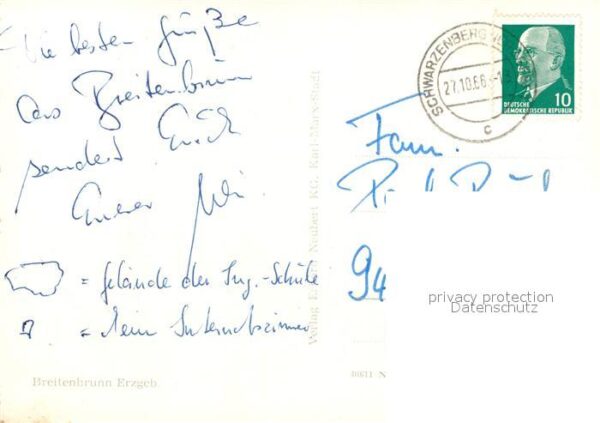 Die besten Grüße
aus Breitenbrunn
sendet Euch
Euer
= Gelände der Ing.-Schule
= Mein Internatszimmer
Breitenbrunn Erzgeb
Neubert KG, Karl-Marx-Stadt
Verlag
SCHWARZENBERG
27.10.66
c
DEUTSCHE
DEMOKRATISCHE REPUBLIK
10
Fam.
94
privacy protection
Datenschutz